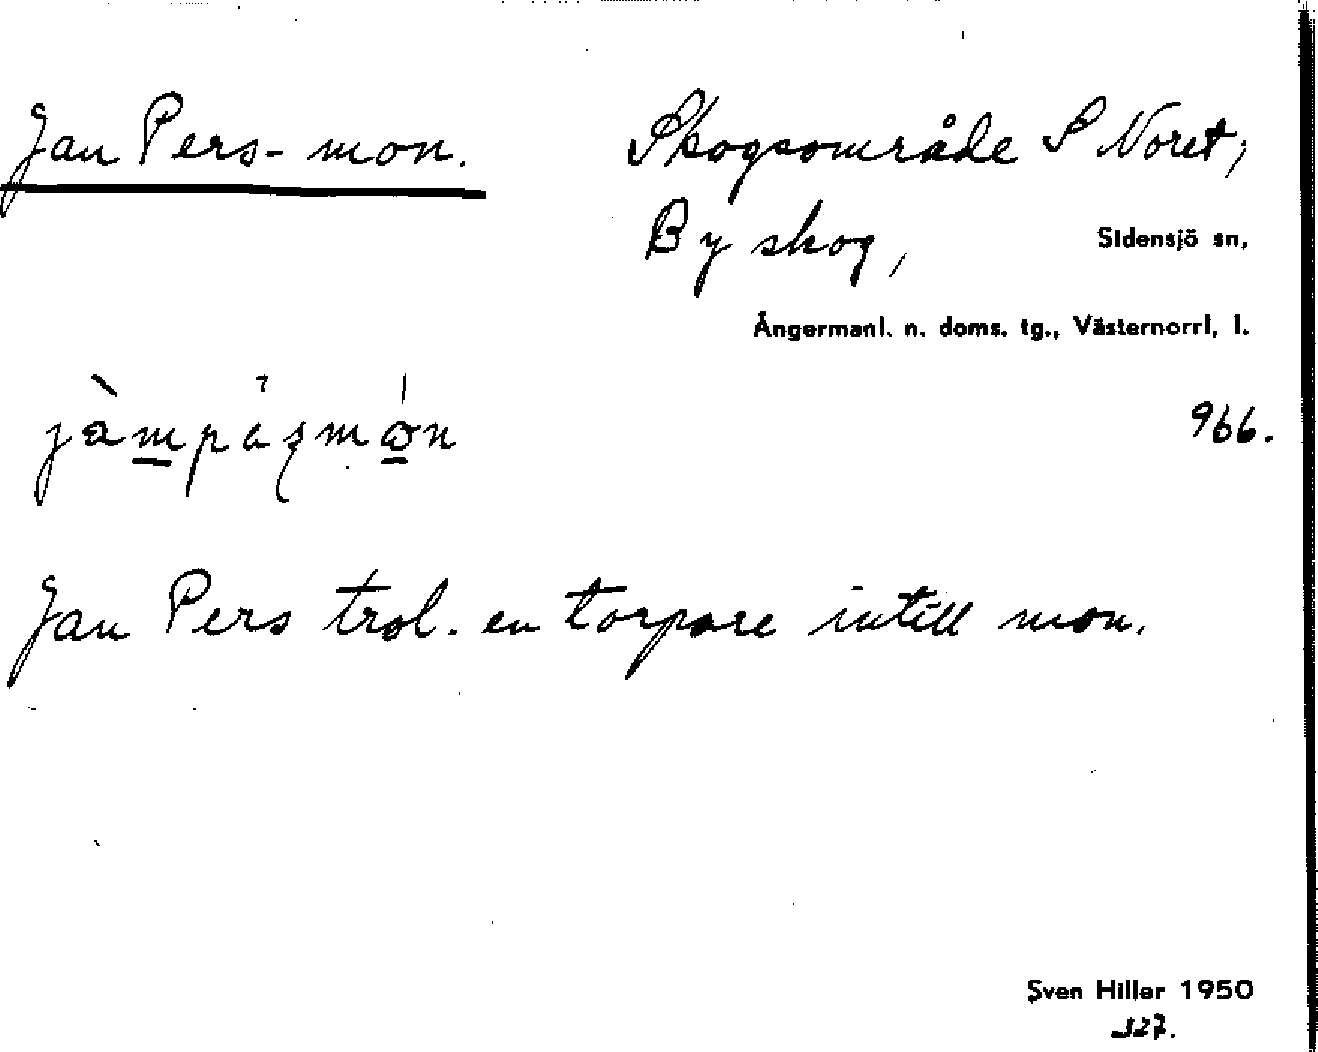 Jan Pers-mon.
Skogsområde S Noret,
By skog,
Sidensjö sn,
Ångermanl. n. doms. tg., Västernorrl, l.
966.
Jan Pers trol. en torpare intill mon.
Sven Hiller 1950
327.